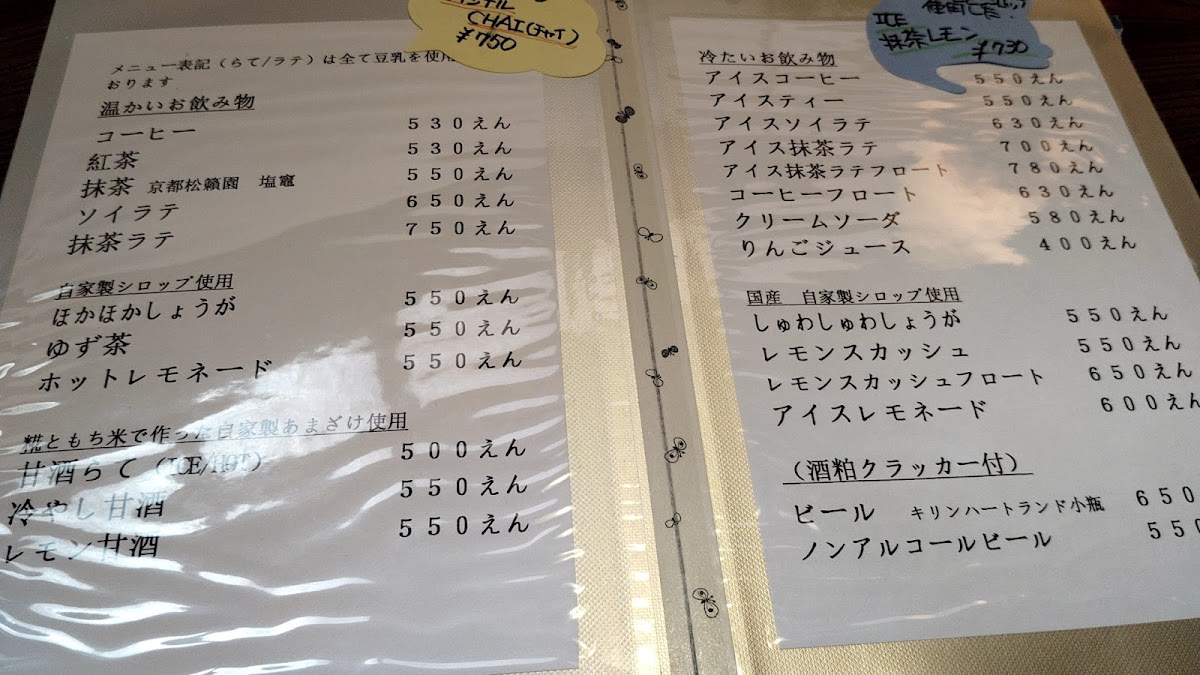 CHAI(チャイ)
¥750
メニュー表記(らて/ラテ)は全て豆乳を使用
おります
温かいお飲み物
コーヒー 530えん
紅茶 530えん
抹茶 京都松籟園 塩竈 550えん
ソイラテ 650えん
抹茶ラテ 750えん
自家製シロップ使用
ほかほかしょうが 550えん
ゆず茶 550えん
ホットレモネード 550えん
糀ともち米で作った自家製あまざけ使用
甘酒らて(ICE/HOT) 500えん
冷やし甘酒 550えん
レモン甘酒 550えん
ICE
抹茶レモン
¥730
冷たいお飲み物
アイスコーヒー 550えん
アイスティー 550えん
アイスソイラテ 630えん
アイス抹茶ラテ 700えん
アイス抹茶ラテフロート 780えん
コーヒーフロート 630えん
クリームソーダ 580えん
りんごジュース 400えん
国産 自家製シロップ使用
しゅわしゅわしょうが 550えん
レモンスカッシュ 550えん
レモンスカッシュフロート 650えん
アイスレモネード 600えん
(酒粕クラッカー付)
ビール キリンハートランド小瓶 650
ノンアルコールビール 550